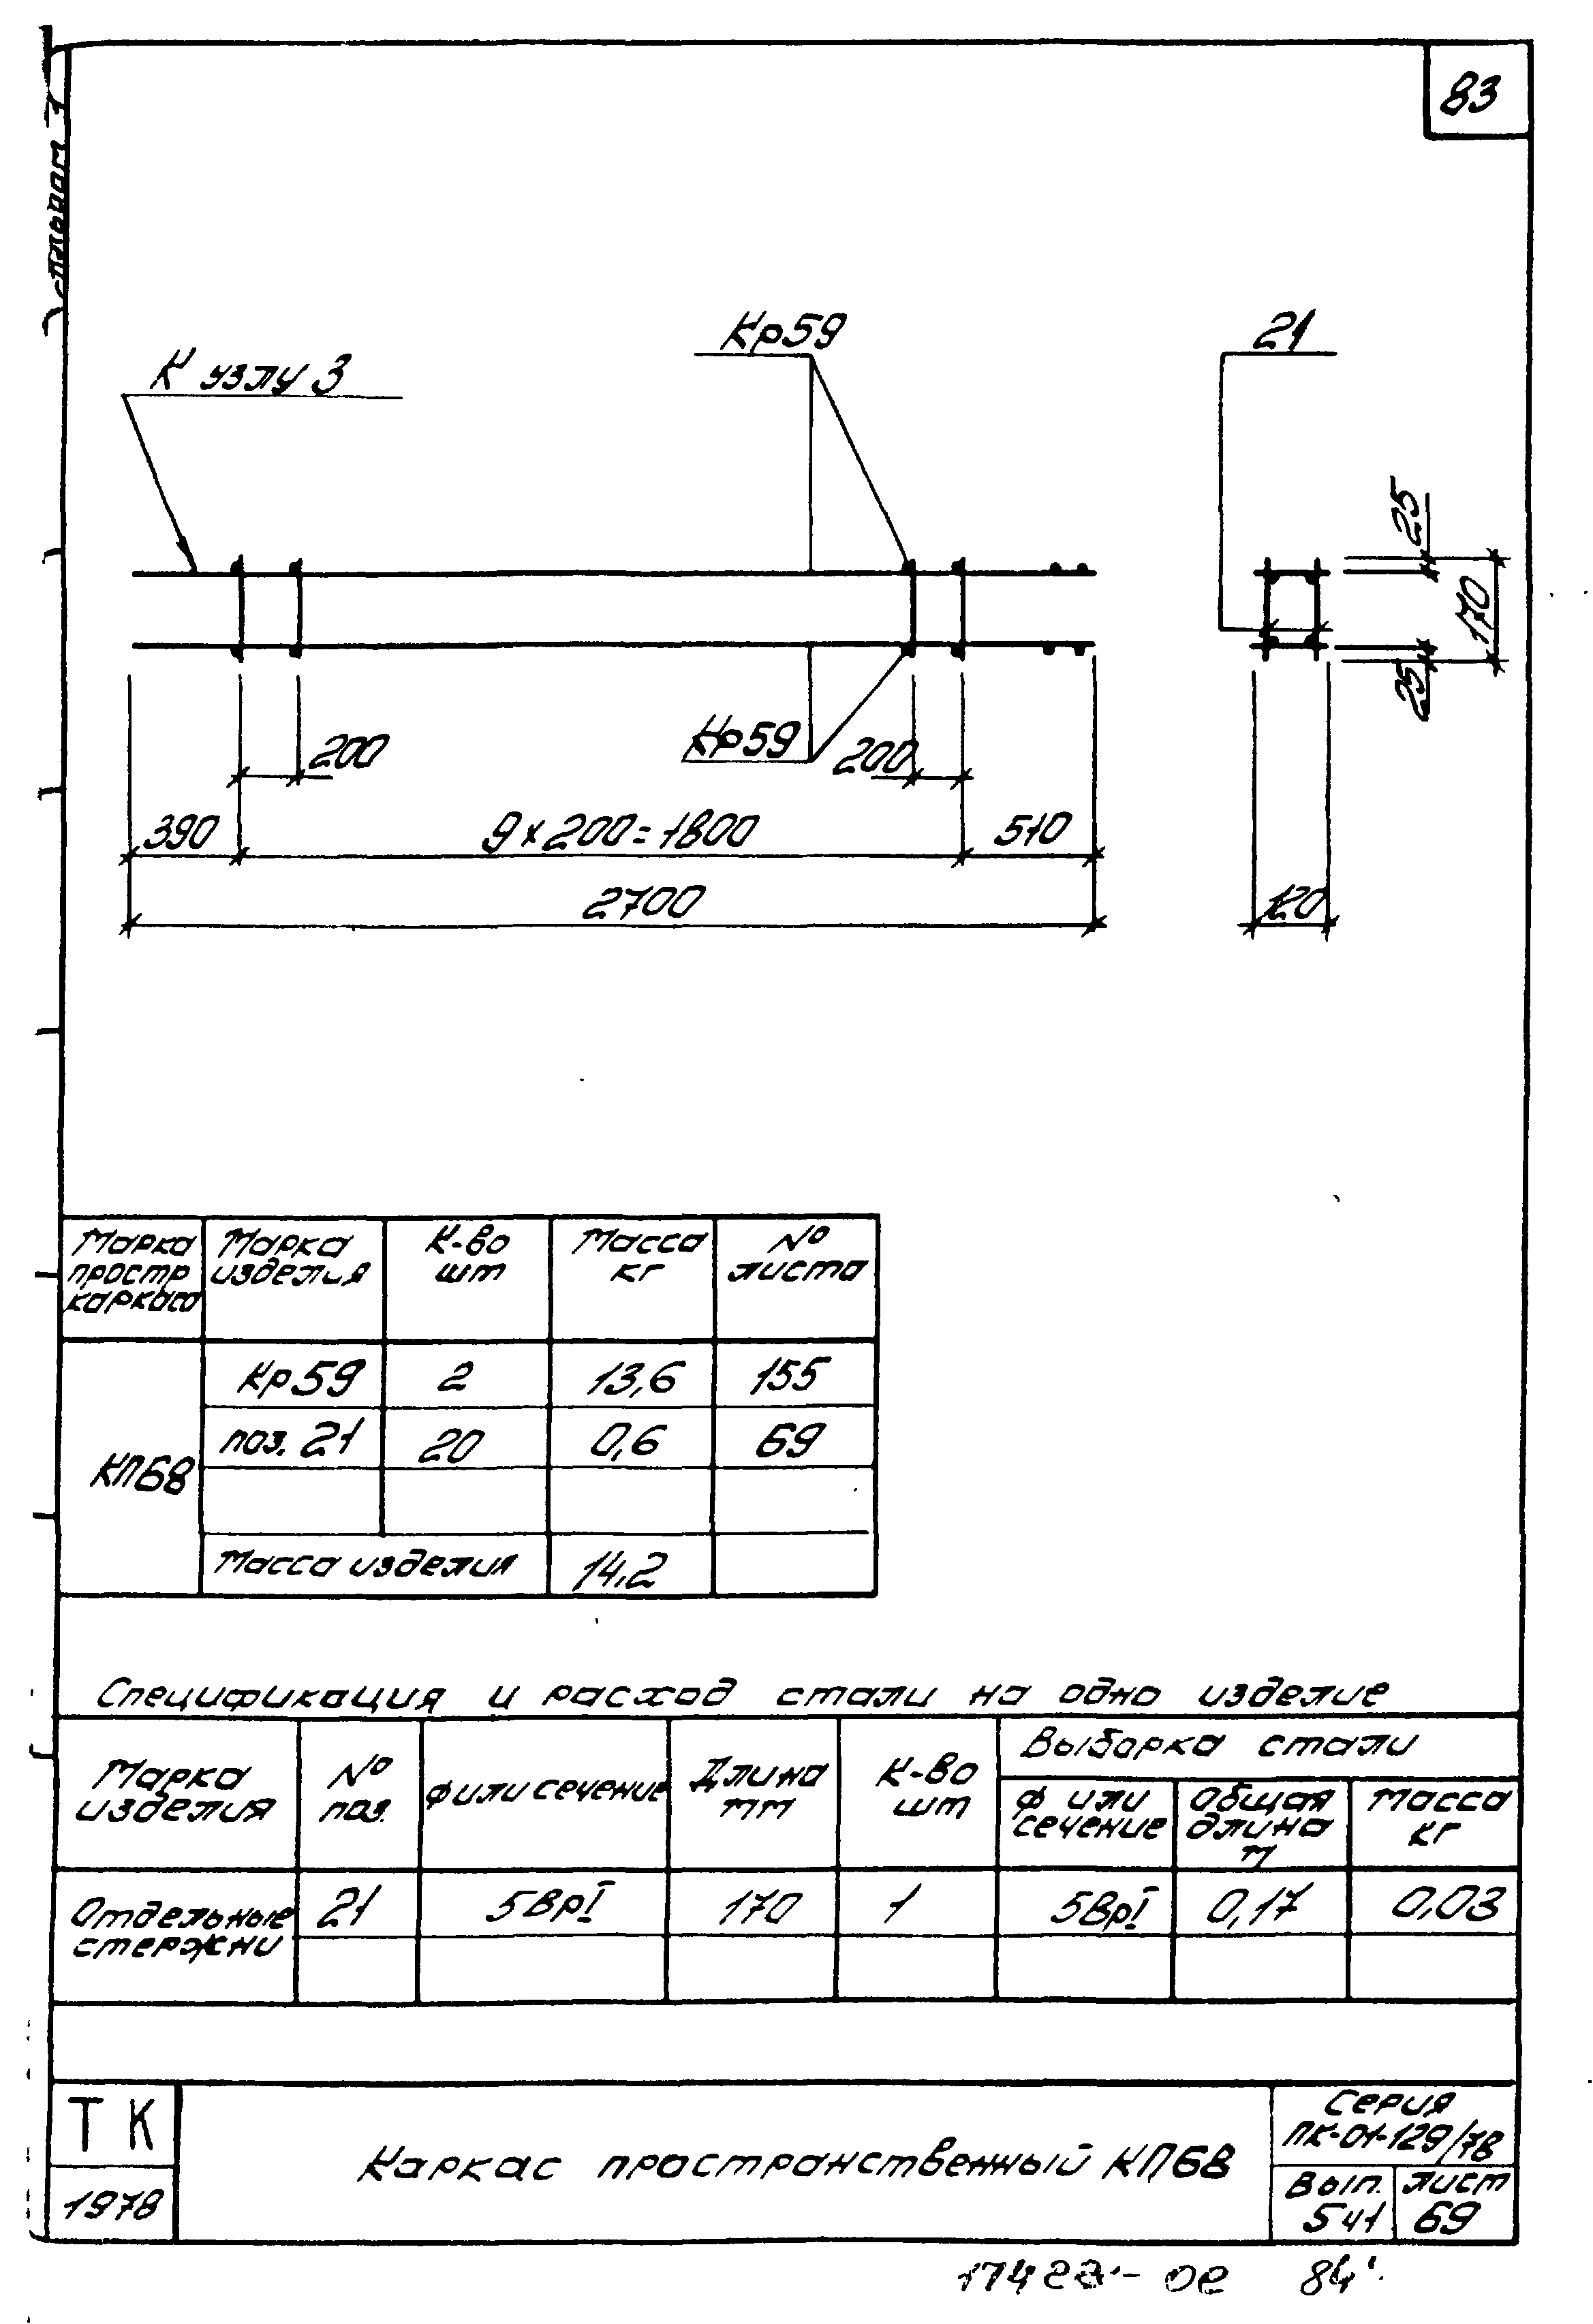 83
К узлу 3
Кр59
21
25
170
25
200
Кр59
200
390
9×200=1800
510
2700
120
Марка простр каркаса
Марка изделия
К-во шт
Масса кг
№ листа
КП68
Кр59 2 13,6 155
поз. 21 20 0,6 69
Масса изделия 14,2
Спецификация и расход стали на одно изделие
Марка изделия
№ поз.
ф или сечение
Длина мм
К-во шт
Выборка стали
ф или сечение
Общая длина м
Масса кг
Отдельные стержни
21 5ВрI 170 1 5ВрI 0,17 0,03
ТК
1978
Каркас пространственный КП68
Серия
ПК-01-129/78
Вып. 5ч1
лист 69
84